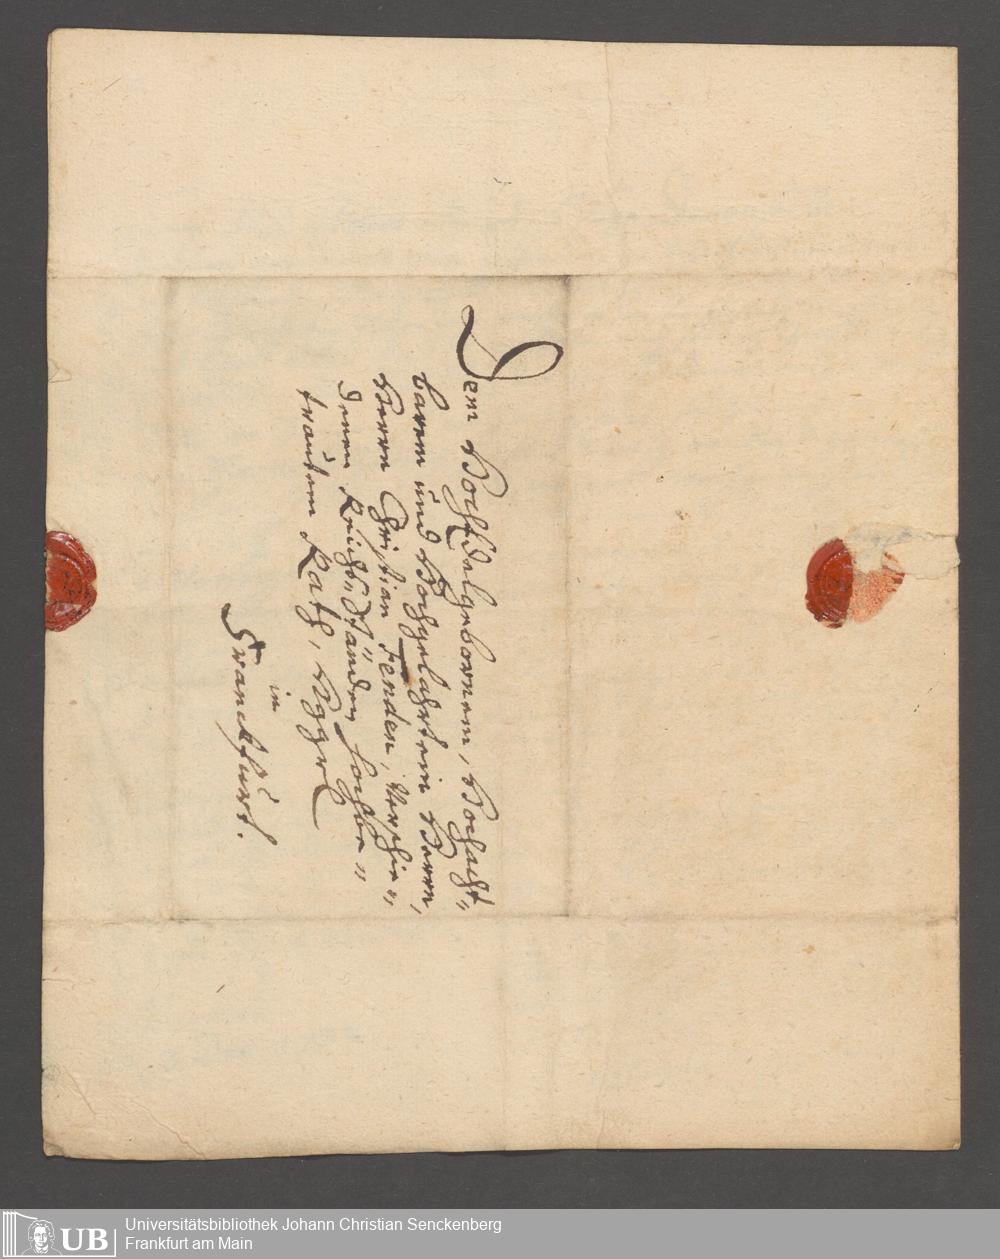 Dem HochEdelgebornem, Hochacht„
barem und Hochgelahrtem Herrn,
Herrn Christian Fenden, Verschie„
denen Reichs„Ständen Hochbe„
trautem Rath,
in
Franckfurt.
Universitätsbibliothek Johann Christian Senckenberg
Frankfurt am Main
UB